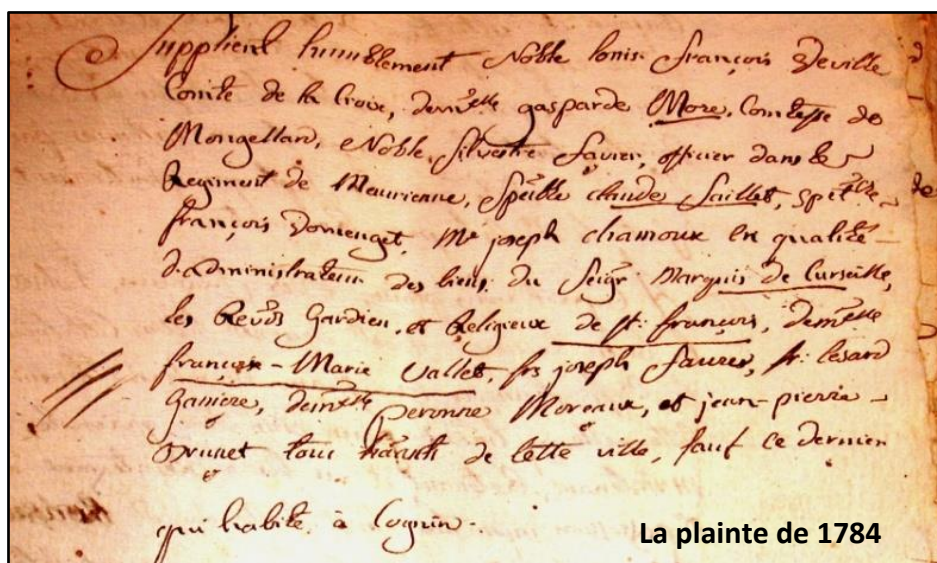 Supplient humblement Noble louis françois Deville
Comte de la Croix, demlle gasparde More, Comtesse de
Mongellard, Noble Silvestre favier, officier dans le
Regiment de Maurienne, Spble claude Saillet, Spble
françois Domenget, Me joseph chamoux en qualité
d'administrateur des biens du Seigr Marquis de Curseille,
les Revds Gardien, et Religieux de st: françois, demlle
françoise-Marie Vallet, joseph faure, sr: Cesard
Ganiere, demlle peronne Moreaux, et jean-pierre
Brunet tous de cette ville, sauf ce dernier
qui habite à Cognin.
La plainte de 1784